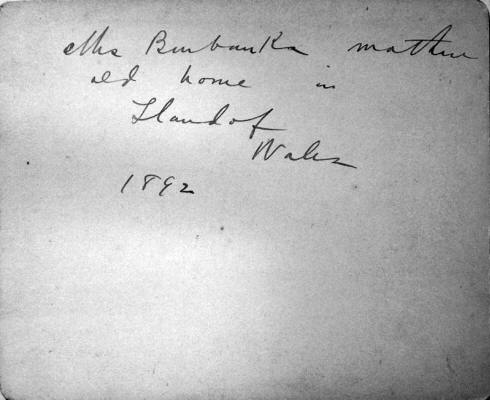 Mrs Burbanks mother
old home in
Llandof
Wales
1892